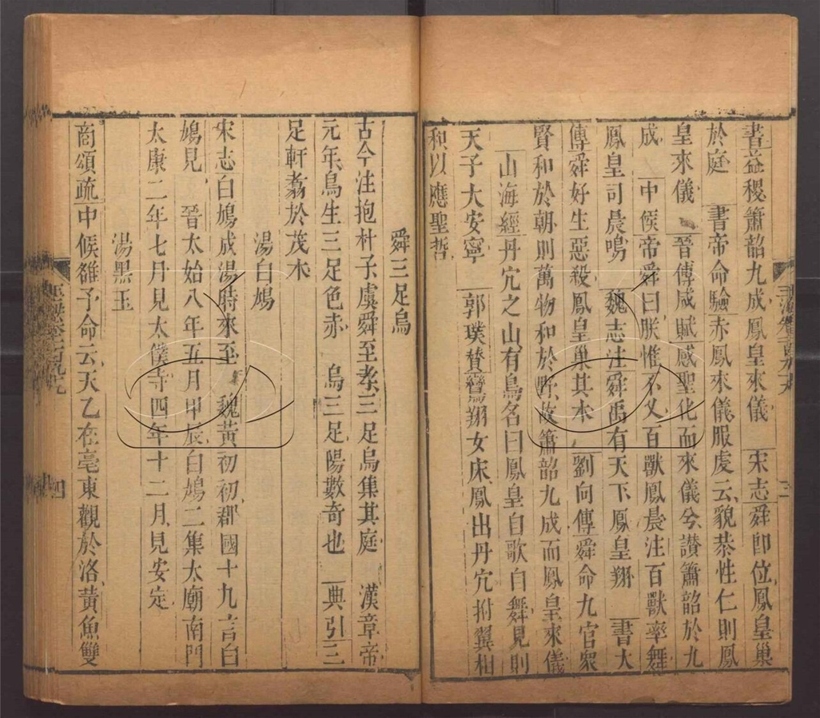 書益稷簫韶九成鳳皇來儀 宋志舜即位鳳皇巢
於庭 書帝命驗赤鳳來儀服虔云貌恭性仁則鳳
皇來儀 晉傅咸賦感聖化而來儀兮讃簫韶於九
成 中候帝舜曰朕惟不乂百獸鳳晨注百獸率舞
鳳皇司晨鳴 魏志注舜禹有天下鳳皇翔 書大
傳舜好生惡殺鳳皇巢其木 劉向傳舜命九官衆
賢和於朝則萬物和於野故簫韶九成而鳳皇來儀
山海經丹穴之山有鳥名曰鳳皇自歌自舞見則
天子大安寧 郭璞贊鸞翔女床鳳出丹穴拊翼相
和以應聖哲
玉海卷一百九十九
三
舜三足烏
古今注抱朴子虞舜至孝三足烏集其庭 漢章帝
元年烏生三足色赤 烏三足陽數奇也 典引三
足軒翥於茂木
湯白鳩
宋志白鳩成湯時來至 魏黃初初郡國十九言白
鳩見 晉太始八年五月甲辰白鳩二集太廟南門
太康二年七月見太僕寺四年十二月見安定
湯黑玉
商頌疏中候雒予命云天乙在亳東觀於洛黃魚雙
玉海卷一百九十九
四